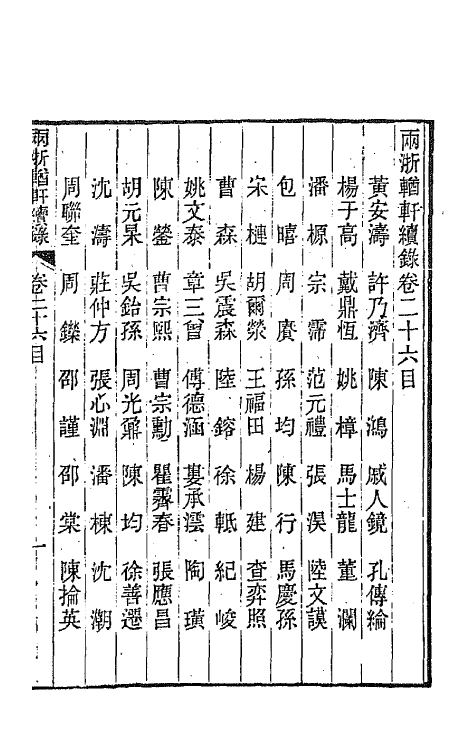 兩浙輶軒續錄卷二十六目
黃安濤 許乃濟 陳鴻 戚人鏡 孔傳綸
楊于高 戴鼎恆 姚樟 馬士龍 董瀾
潘楙 宗霈 范元禮 張淏 陸文謨
包曦 周賡 孫均 陳行 馬慶孫
宋槤 胡爾滎 王福田 楊建 查弈照
曹森 吳震森 陸鎔 徐軧 紀峻
姚文泰 章三曾 傅德涵 婁承澐 陶璜
陳鎣 曹宗熙 曹宗勳 瞿霽春 張應昌
胡元杲 吳飴孫 周光鼐 陳均 徐善遷
沈濤 莊仲方 張心淵 潘棟 沈潮
周聯奎 周鑅 邵謹 邵棠 陳掄英
兩浙輶軒續錄 卷二十六目 一